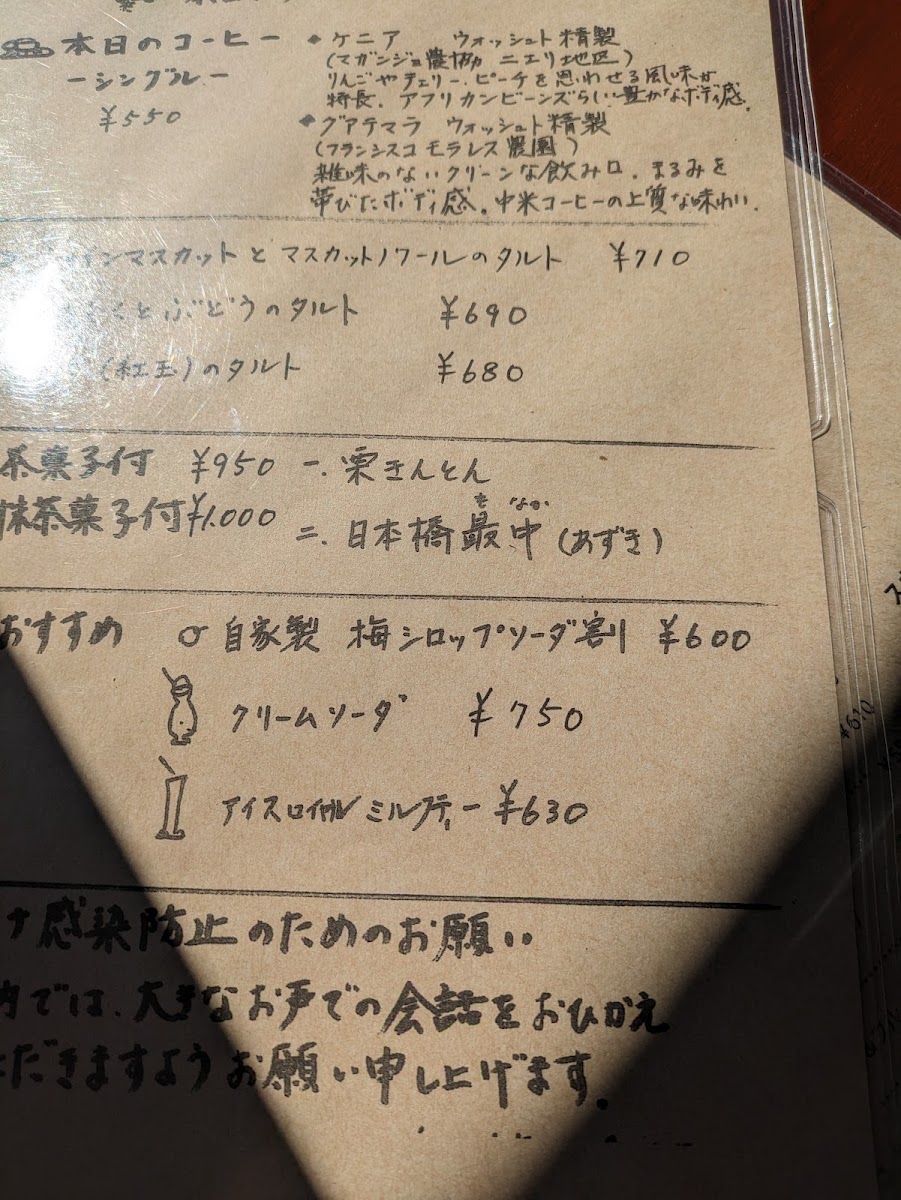 本日のコーヒー
ーシングルー
¥550
ケニア ウォッシュト精製
(マガンジョ農協 ニエリ地区)
りんごやチェリー、ピーチを思わせる風味が
特長。アフリカンビーンズらしい豊かなボディ感。
グアテマラ ウォッシュト精製
(フランシスコ モラレス農園)
雑味のないクリーンな飲み口。まるみを
帯びたボディ感。中米コーヒーの上質な味わい。
インマスカットとマスカットノワールのタルト ¥710
くとぶどうのタルト ¥690
(紅玉)のタルト ¥680
茶菓子付 ¥950 一.栗きんとん
抹茶菓子付¥1.000
もなか
二.日本橋最中(あずき)
おすすめ 自家製 梅シロップソーダ割り ¥600
クリームソーダ ¥750
アイスロイヤルミルクティー ¥630
ナ感染防止のためのお願い
内では、大きなお声での会話をおひかえ
ただきますようお願い申し上げます。
¥610